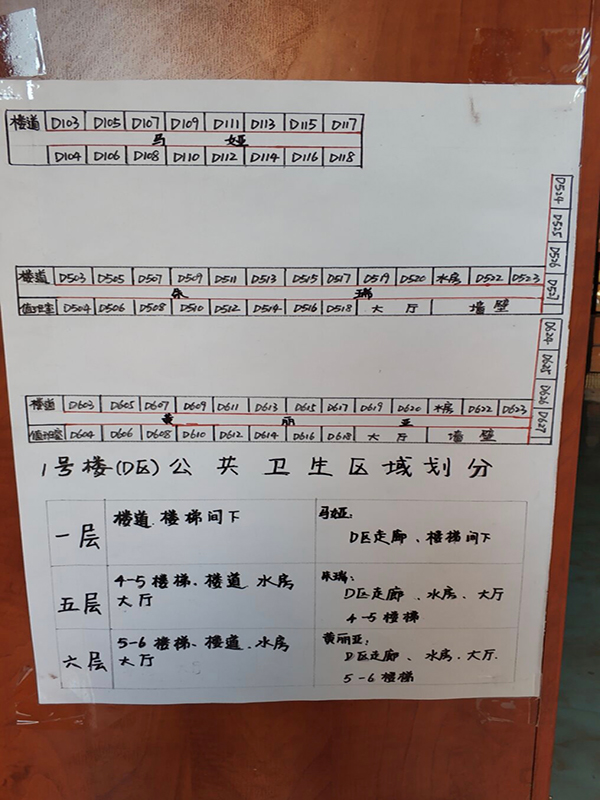 楼道 D103 D105 D107 D109 D111 D113 D115 D117
马 娅
D104 D106 D108 D110 D112 D114 D116 D118
D524 D525 D526 D527
楼道 D503 D505 D507 D509 D511 D513 D515 D517 D519 D520 水房 D522 D523
朱 瑞
值班室 D504 D506 D508 D510 D512 D514 D516 D518 大厅 墙壁
D624 D625 D626 D627
楼道 D603 D605 D607 D609 D611 D613 D615 D617 D619 D620 水房 D622 D623
黄 丽 亚
值班室 D604 D606 D608 D610 D612 D614 D616 D618 大厅 墙壁
1号楼(D区)公共卫生区域划分
一层
楼道、楼梯间下
马娅:
D区走廊、楼梯间下
五层
4-5楼梯、楼道、水房
大厅
朱瑞:
D区走廊、水房、大厅
4-5楼梯
六层
5-6楼梯、楼道、水房
大厅
黄丽亚:
D区走廊、水房、大厅.
5-6楼梯